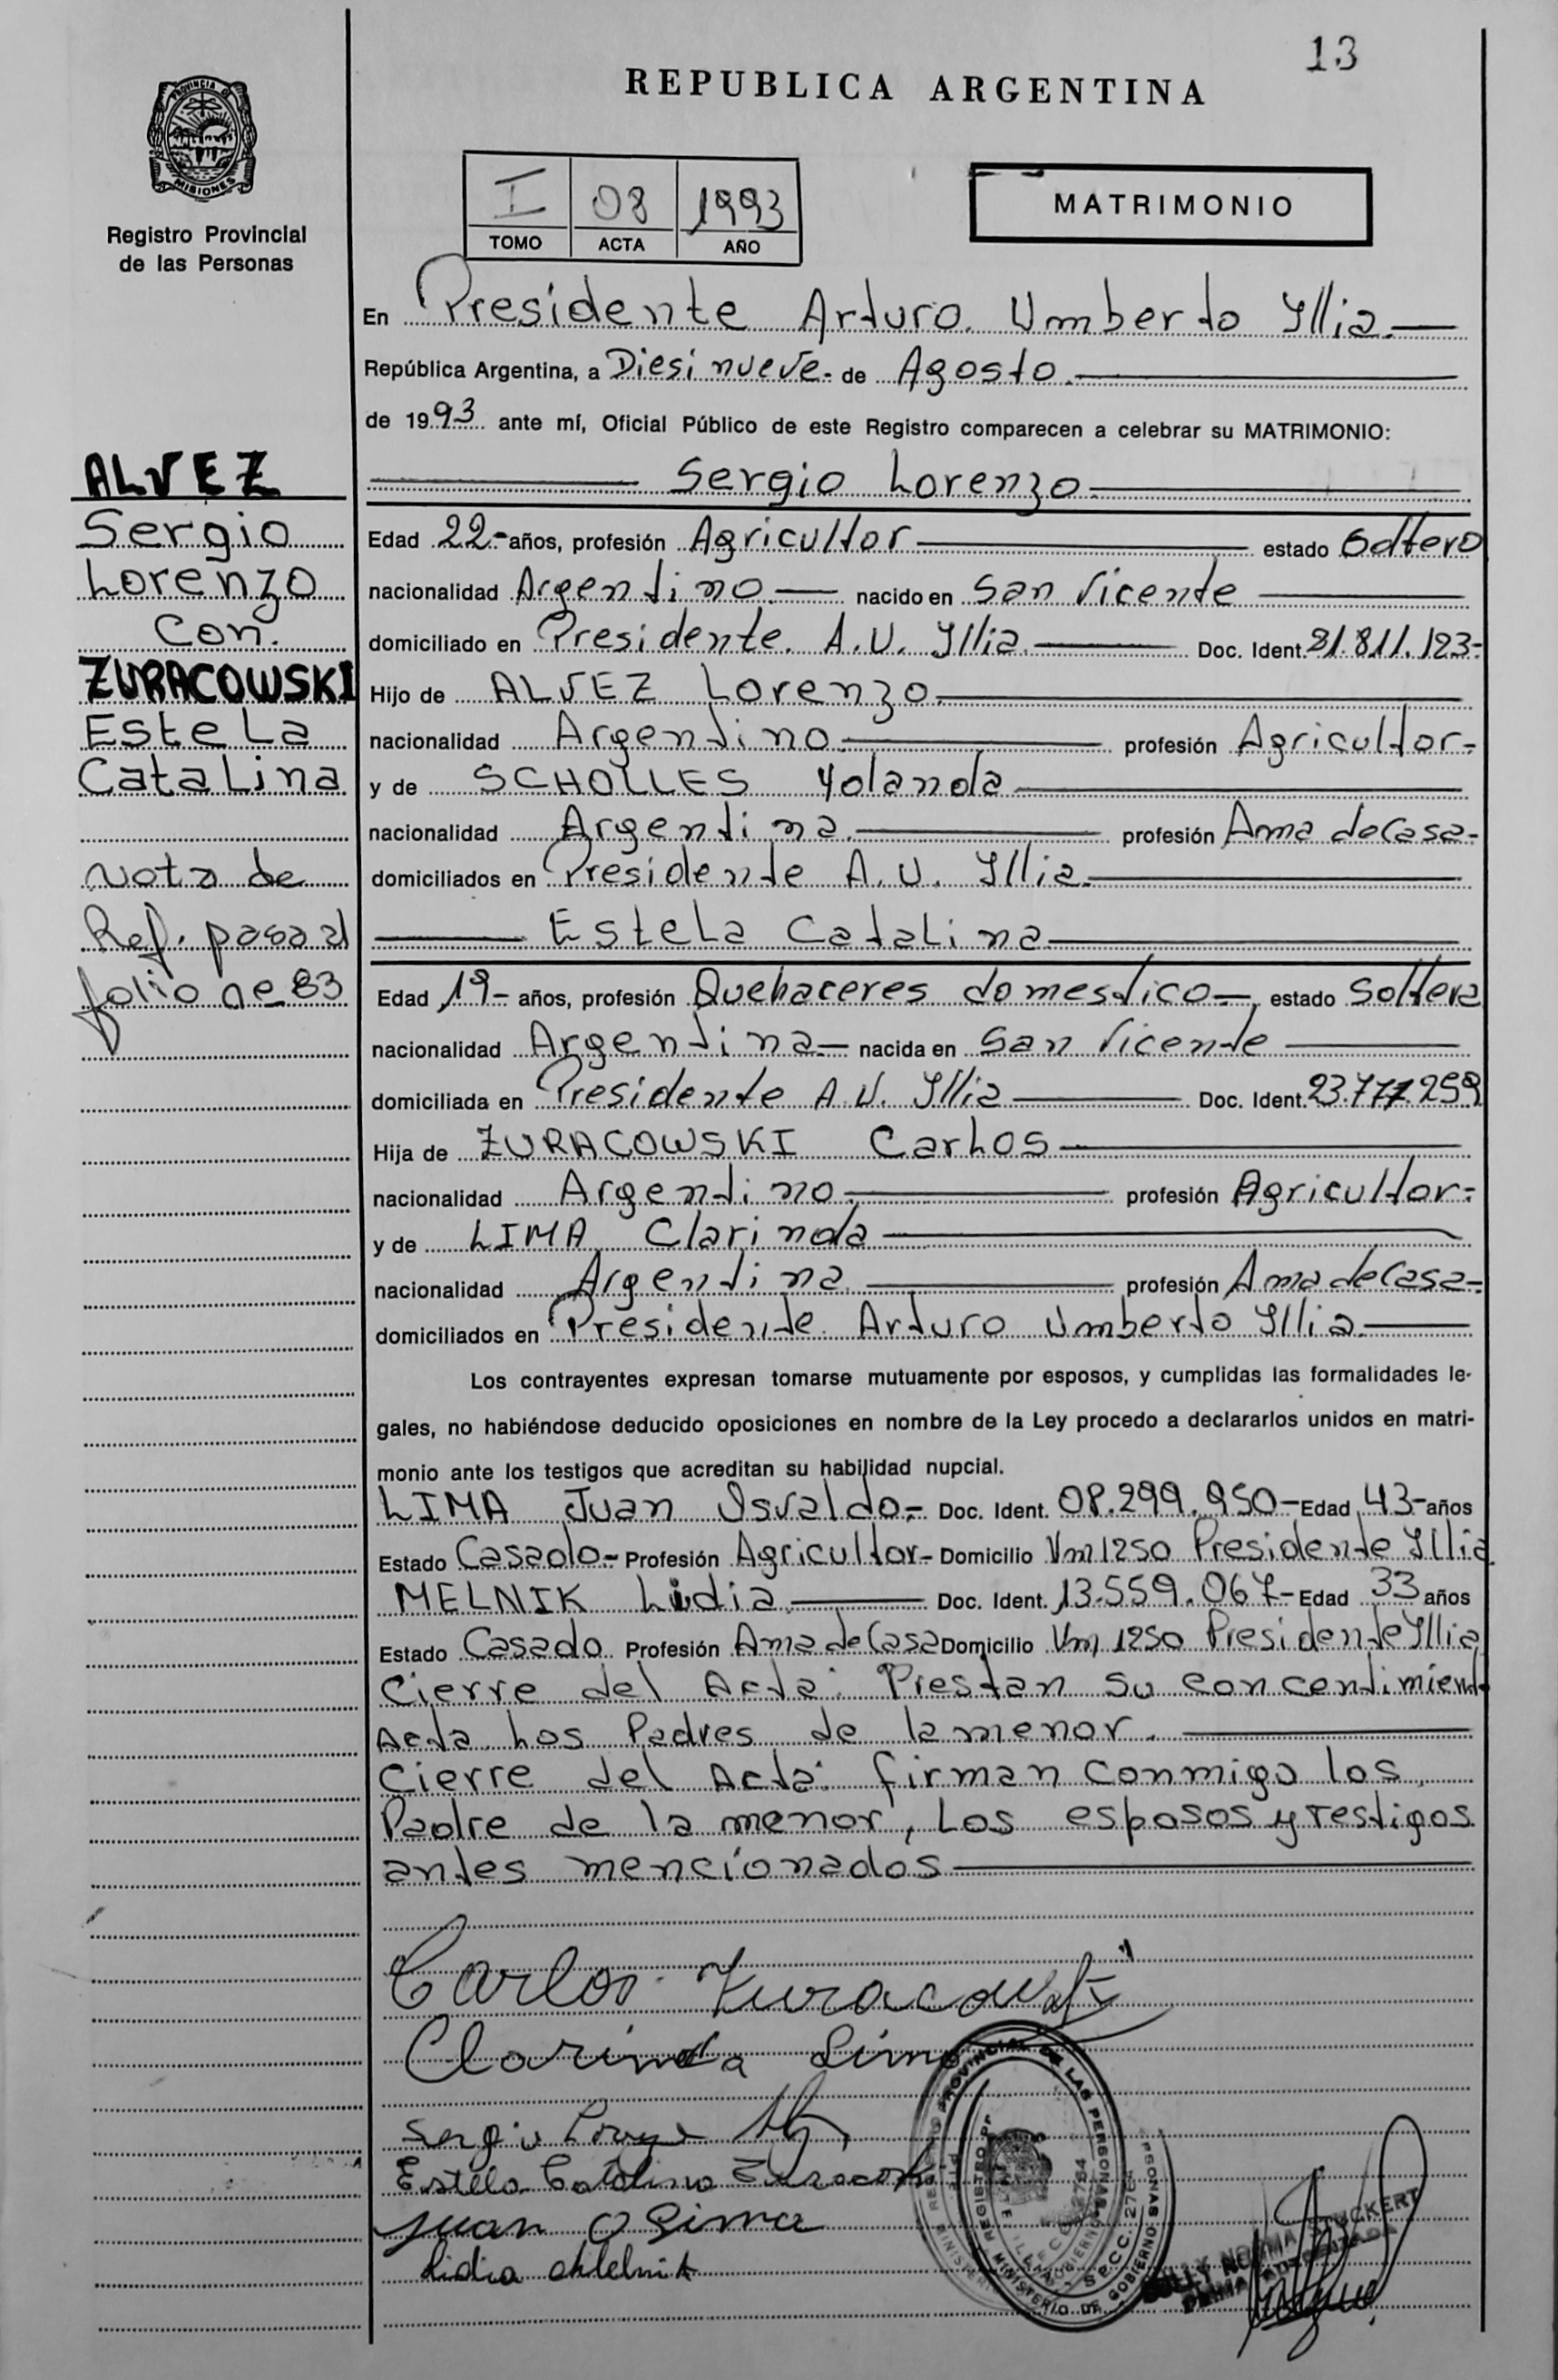 13
REPUBLICA ARGENTINA
PROVINCIA DE MISIONES
Registro Provincial
de las Personas
I 08 1993
TOMO ACTA AÑO
MATRIMONIO
En Presidente Arturo Umberto Yllia.
República Argentina, a Diesi nueve.- de Agosto.
de 1993 ante mí, Oficial Público de este Registro comparecen a celebrar su MATRIMONIO:
ALVEZ
Sergio
Lorenzo
Con.
ZURACOWSKI
Estela
Catalina
Nota de
Ref. pasa al
folio nº 83
Sergio Lorenzo
Edad 22.- años, profesión Agricultor estado Soltero
nacionalidad Argentino.- nacido en San Vicente
domiciliado en Presidente. A.U. Yllia. Doc. Ident. 21.811.123-
Hijo de ALVEZ Lorenzo.
nacionalidad Argentino. profesión Agricultor-
y de SCHOLLES Yolanda
nacionalidad Argentina. profesión Ama de Casa-
domiciliados en Presidente A.U. Yllia.
Estela Catalina
Edad 19- años, profesión Quehaceres domestico- estado Soltera
nacionalidad Argentina.- nacida en San Vicente
domiciliada en Presidente A.U. Yllia Doc. Ident. 23.777.259
Hija de ZURACOWSKI Carlos
nacionalidad Argentino. profesión Agricultor-
y de LIMA Clarinda
nacionalidad Argentina. profesión Ama de Casa-
domiciliados en Presidente Arturo Umberto Yllia.
Los contrayentes expresan tomarse mutuamente por esposos, y cumplidas las formalidades le-
gales, no habiéndose deducido oposiciones en nombre de la Ley procedo a declararlos unidos en matri-
monio ante los testigos que acreditan su habilidad nupcial.
LIMA Juan Osvaldo.- Doc. Ident. 08.299.950- Edad 43- años
Estado Casado- Profesión Agricultor- Domicilio Vm 1250 Presidente Yllia
MELNIK Lidia. Doc. Ident. 13.559.067- Edad 33 años
Estado Casado Profesión Ama de Casa Domicilio Vm 1250 Presidente Yllia
Cierre del Acta: Prestan su concentimient
Acta Los Padres de la menor.
Cierre del Acta: firman conmigo los
Padre de la menor, Los esposos y testigos
antes mencionados
Carlos Zuracowski
Clarinda Lima
Sergio
Estela Catalina Zuracowski
Juan O Lima
Lidia Melnik
REGISTRO PROVINCIAL DE LAS PERSONAS
MINISTERIO DE GOBIERNO
NORMA